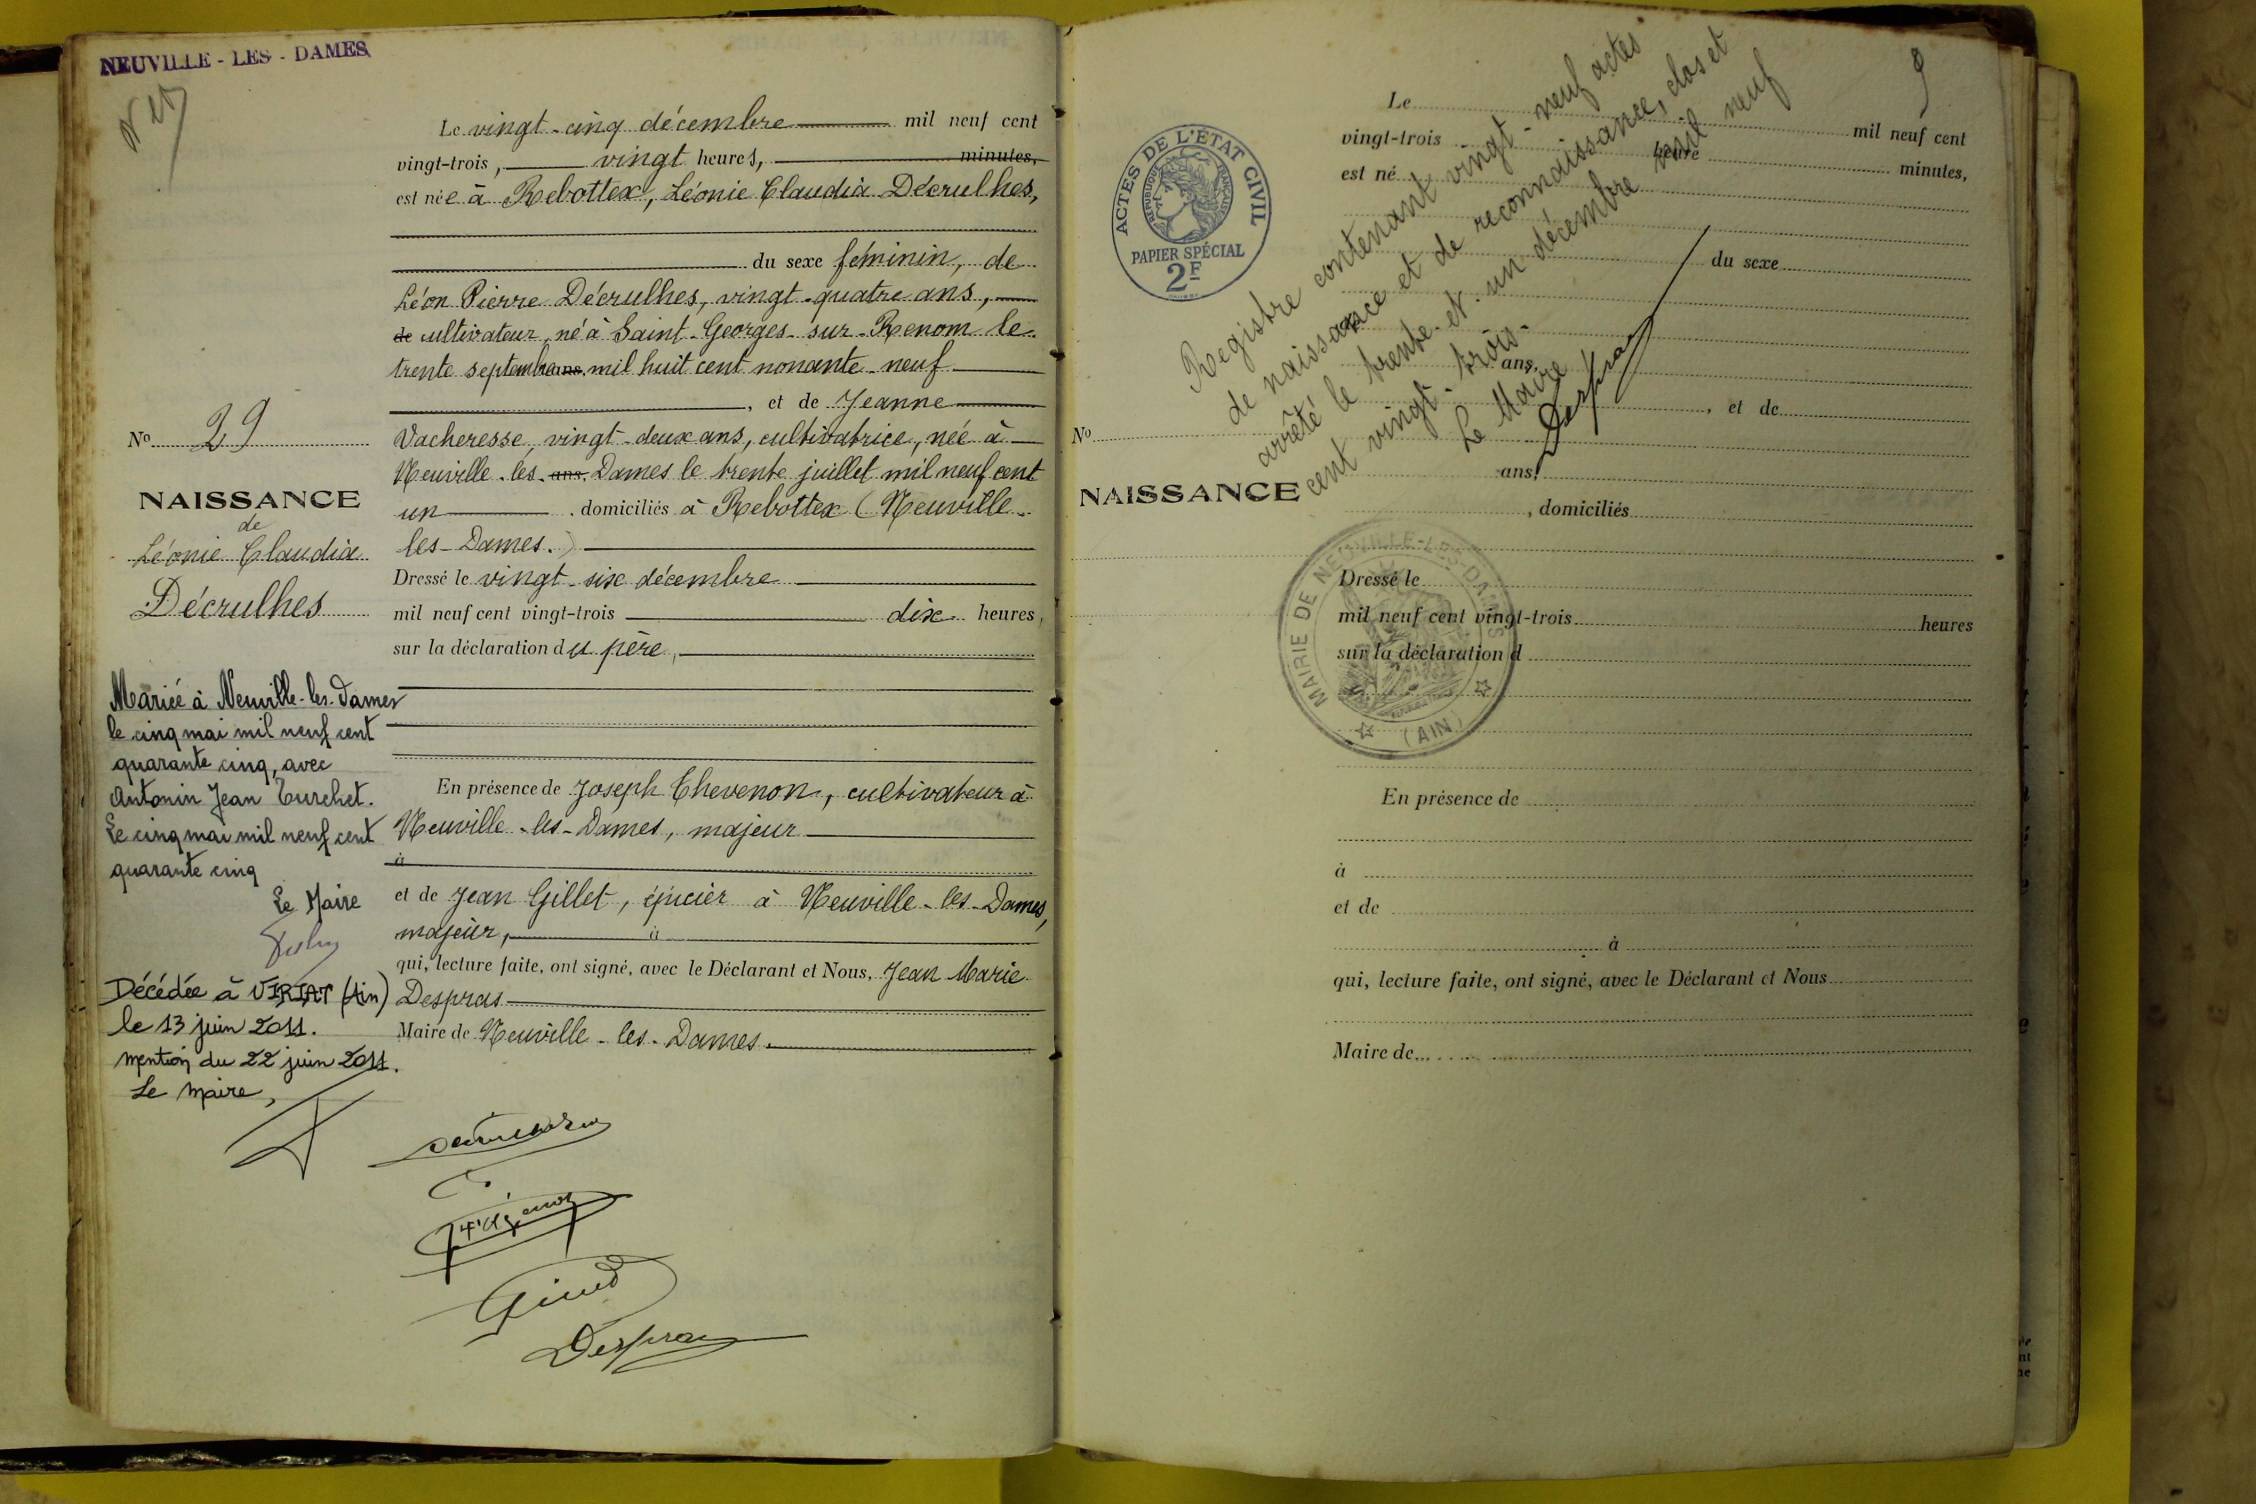 NEUVILLE - LES - DAMES
Le vingt-cinq décembre mil neuf cent
vingt-trois, vingt heures, minutes,
est née à Rebottex, Léonie Claudia Décrulhes,
du sexe féminin, de
Léon Pierre Décrulhes, vingt-quatre ans,
de cultivateur, né à Saint-Georges-sur-Renom le
trente septembre ans, mil huit cent nonante-neuf
, et de Jeanne
Vacheresse, vingt-deux ans, cultivatrice, née à
Neuville-les-ans, Dames le trente juillet mil neuf cent
un , domiciliés à Rebottex (Neuville-
les-Dames.)
Dressé le vingt-six décembre
mil neuf cent vingt-trois dix heures,
sur la déclaration du père,
En présence de Joseph Thevenon, cultivateur à
Neuville-les-Dames, majeur
à
et de Jean Gillet, épicier à Neuville-les-Dames,
majeur, à
qui, lecture faite, ont signé, avec le Déclarant et Nous, Jean Marie
Despras
Maire de Neuville-les-Dames.
Despras
No 29
NAISSANCE
de
Léonie Claudia
Décrulhes
Mariée à Neuville-les-Dames
le cinq mai mil neuf cent
quarante cinq, avec
Antonin Jean Turchet.
Le cinq mai mil neuf cent
quarante cinq
Le Maire
Décédée à VIRIAT (Ain)
le 13 juin 2011.
mention du 22 juin 2011.
Le maire,
ACTES DE L'ÉTAT CIVIL
RÉPUBLIQUE FRANÇAISE
PAPIER SPÉCIAL
2F
9
Registre contenant vingt-neuf actes
de naissance et de reconnaissance, clos et
arrêté le trente-et-un décembre mil neuf
cent vingt-trois.
Le Maire
Despras
Le
vingt-trois mil neuf cent
heure minutes,
est né
du sexe
ans,
, et de
No
ans,
NAISSANCE
, domiciliés
Dressé le
mil neuf cent vingt-trois heures
sur la déclaration d
MAIRIE DE NEUVILLE-LES-DAMES
(AIN)
En présence de
à
et de
à
qui, lecture faite, ont signé, avec le Déclarant et Nous
Maire de